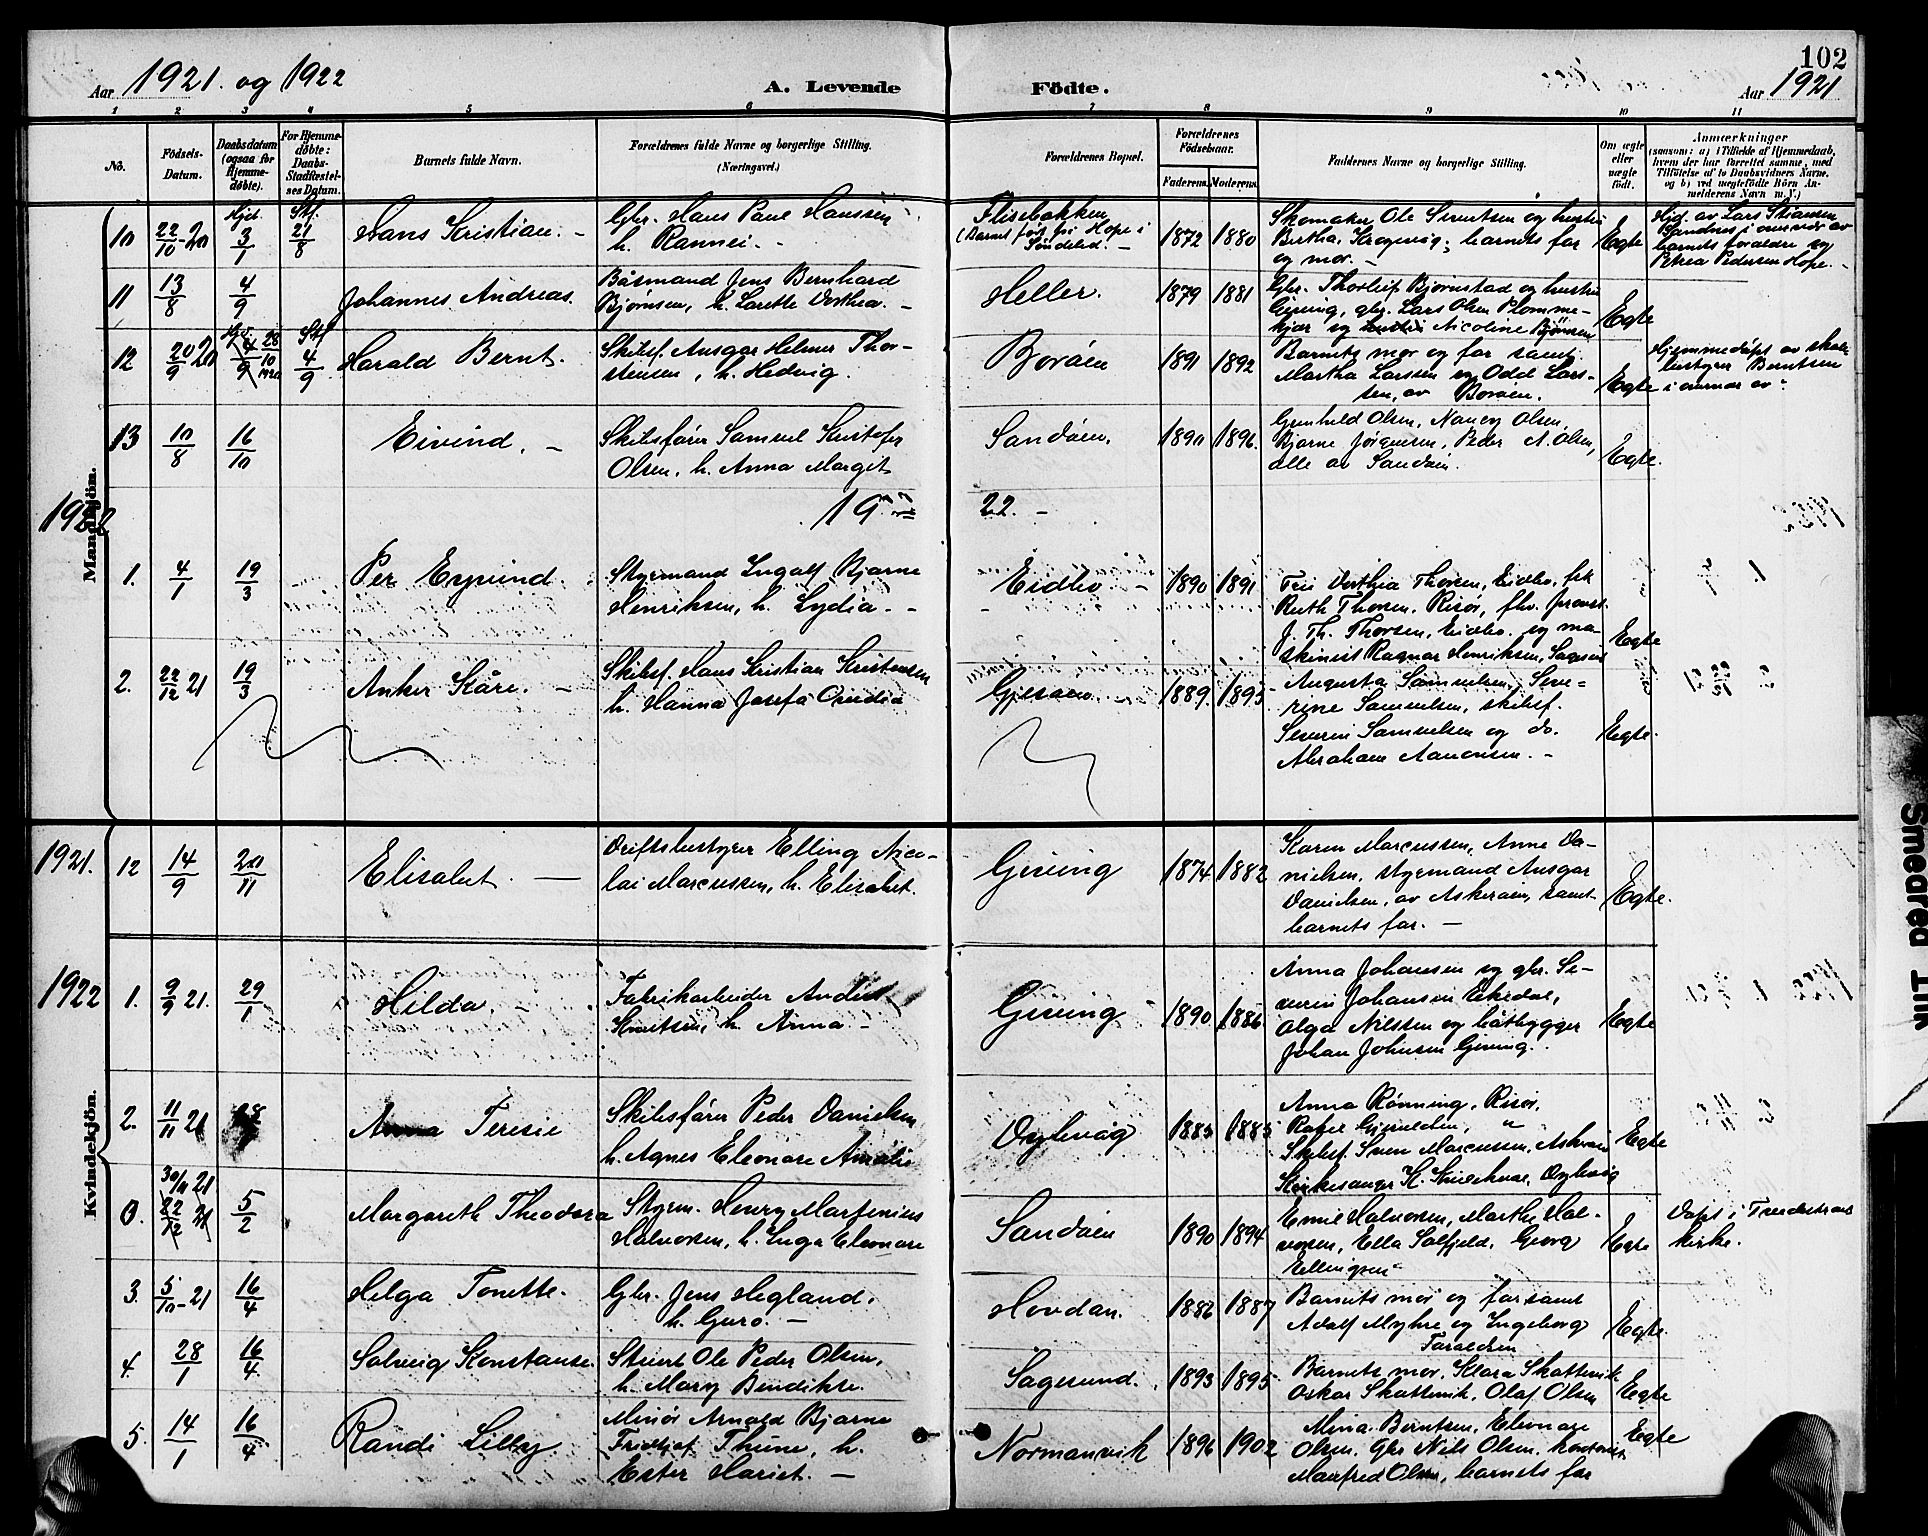 Aar 1921. og 1922
A. Levende
Födte.
102
Aar 1921
1 2 3 4 5 6 7 8 9 10 11
No.
Födsels-Datum.
Daabsdatum (ogsaa for Hjemmedöbte).
For Hjemmedöbte: Daabs-Stadfæstelses Datum.
Barnets fulde Navn.
Forældrenes fulde Navne og borgerlige Stilling.
(Næringsvei.)
Forældrenes Bopæl.
Forældrenes Födselsaar.
Faderens. Moderens.
Faddernes Navne og borgerlige Stilling.
Om ægte eller uægte födt.
Anmærkninger
(saasom: a) i Tilfælde af Hjemmedaab, hvem der har forrettet samme, med Tilföielse af to Daabsvidners Navne, og b) ved uægtefödte Börn Anmelderens Navn m. V.)
Mandkjön.
10 22/10-20 Hjd. 3/1 Stf. 21/8 Hans Kristian. – Gbr. Hans Paul Hanssen
h. Rannei. – Flisebakken
(Barnet født på Hope i Søndeled. – 1872 1880
Skomaker Ole Sivertsen og hustru
Bertha, Krogsvig; barnets far
og mor. – Egte
Hjd. av Lars Stiansen
Sandnes i overvær av
barnets foraldre og
Petrea Pedersen Hope. –
11 13/8 4/9 Johannes Andreas. Båsmand Jens Bernhard
Bjørnsen, h. Larette Dorthea. – Heller. 1879 1881
Gbr. Thorleif Bjørnstad og hustru
Gjering, gbr. Lars Olsen Plomme-
kjær og hustru Nicoline Bjørnsen Egte
12 20/9 20 28/10 1920 Stf 4/9 Harald Bernt. Skibsf. Ansgar Helmer Thor-
stensen, h. Hedvig. Borøen 1891 1892
Barnets mor og far samt
Martha Larssen og Odd Lars-
sen, av Borøen. Egte
Hjemmedøpt av skole
bestyrer Berntsen
i overvær av:
13 10/8 16/10 Eivind. – Skibsfører Samuel Kristofer
Olsen, h. Anna Margit Sandøen. 1890 1896.
Gunhild Olsen, Nancy Olsen,
Bjarne Jørgensen, Peder A. Olsen,
alle av Sandøen. Egte.
1922 1922. –
1. 4/1 19/3 Per Eyvind. Styrmand Ingolf Bjarne
Henriksen, h. Lydia. – Eidbo – 1890 1891
Fru Dorthea Thorsen, Eidbo, frk
Ruth Thorsen, Risør, fhv. provst
J. Th. Thorsen, Eidbo. og ma-
skinist Ragnar Henriksen, Sagesund Egte
2. 22/12 21 19/3 Anker Kåre. – Skibsf. Hans Kristian Kristensen
h. Hanna Josefa Ovidia Gjesøen 1889. 1893
Augusta Samuelsen, Seve-
rine Samuelsen, skibsf.
Severin Samuelsen og do.
Abraham Aanonsen. – Egte.
Kvindekjön.
1921. 12 14/9 20/11 Elisabet. – Driftsbestyrer Elling Nico-
lai Marcussen, h. Elisabet. Gjering 1874 1882
Karen Marcussen, Anne Da-
nielsen, styrmand Ansgar
Danielsen, av Askerøen, samt
barnets far. – Egte.
1922 1. 9/9 21. 29/1 Hilda. – Fabrikarbeider Anders
Knutsen, h. Anna – Gjering 1890 1886
Anna Johansen og gbr. Se-
verin Johansen Ekedal,
Olga Nilssen og båtbygger
Johan Johnsen Gjering. Egte
2. 11/11 21 Anna Teresie Skibsfører Peder Danielsen
h. Agnes Eleonare Amalie Dybvåg 1883 1885
Anna Rønning, Risør,
Skibsf. Sven Marcussen, Askerøen
Kirkesanger K. Dybvåg Egte
0. 30/11 21 22/12 21 5/2 Margareth Theodora Styrm. Henry Marfenius
Halvorsen, h. Inga Eleonare Sandøen 1890 1894
Emil Halvorsen, Marthe Hal-
vorsen, Ella Solfjeld, Georg
Ellingsen Egte
Døpt i Fredrikstads
kirke.
3. 5/10-21 16/4 Helga Tonette. Gbr. Jens Hegland.
h. Guro. – Hovdan. 1886 1887
Barnets mor og far samt
Adolf Myhre og Ingeborg
Taraldsen Egte.
4. 28/1 16/4 Solveig Konstanse. Stuert Ole Peder Olsen,
h. Mary Bendikse. Sagesund. 1893 1895
Barnets mor, Klara Skattevik
Oskar Skattevik, Olaf Olsen Egte
5. 14/1 16/4 Randi Lilly Minør Arnold Bjarne
Fridtjof Thune, h.
Ester Hariet. – Normanvik 1896 1902
Mina Berntsen, Eleonare
Olsen, Gbr Nils Olsen,
Manfred Olsen, barnets far Egte
Smeared Ink